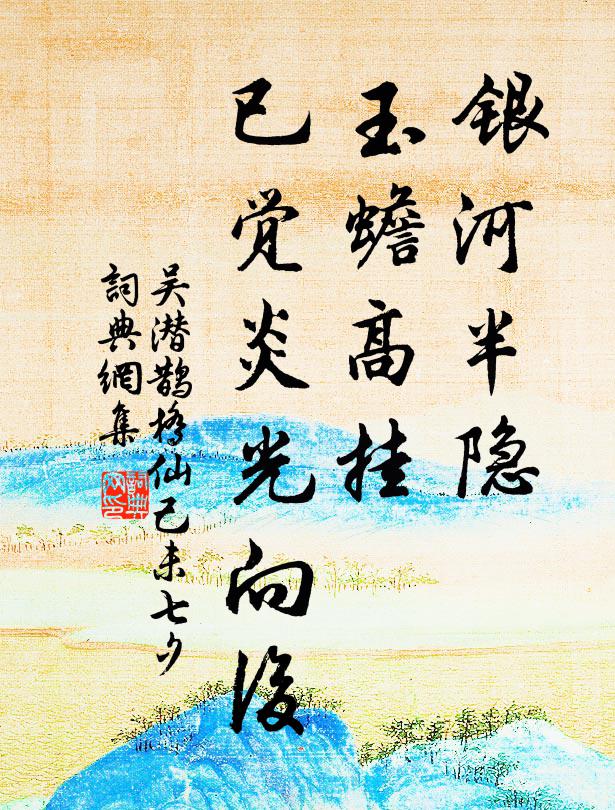 银河半隐
玉蟾高挂
已觉炎光向後
吴潜鹊桥仙己未七夕
詞典網集